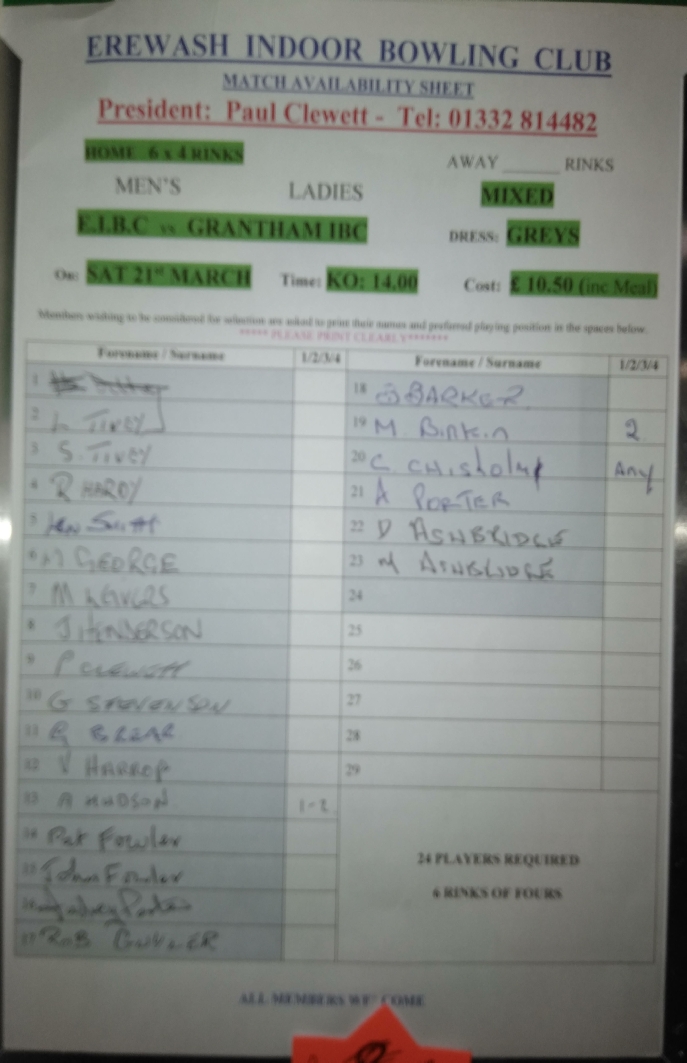 EREWASH INDOOR BOWLING CLUB
MATCH AVAILABILITY SHEET
President: Paul Clewett - Tel: 01332 814482
HOME 6 x 4 RINKS
AWAY ______ RINKS
MEN'S LADIES MIXED
E.I.B.C vs GRANTHAM IBC
DRESS: GREYS
On: SAT 21st MARCH Time: KO: 14.00 Cost: £ 10.50 (inc Meal)
Members wishing to be considered for selection are asked to print their names and preferred playing position in the spaces below.
***** PLEASE PRINT CLEARLY*******
Forename / Surname 1/2/3/4
1
2 L TIVEY
3 S. TIVEY
4 R HARDY
5
6 M GEORGE
7 M
8 J HENDERSON
9 P CLEWETT
10 G STEVENSON
11
12 V HARROP
13 A HUDSON 1-2
14 Pat Fowler
15 John Fowler
16
17 ROB
Forename / Surname 1/2/3/4
18 BARKER
19 M Birkin 2
20 C. CHisholm Any
21 A PORTER
22 D ASHBRIDGE
23 M ASHBRIDGE
24
25
26
27
28
29
24 PLAYERS REQUIRED
6 RINKS OF FOURS
ALL MEMBERS WELCOME